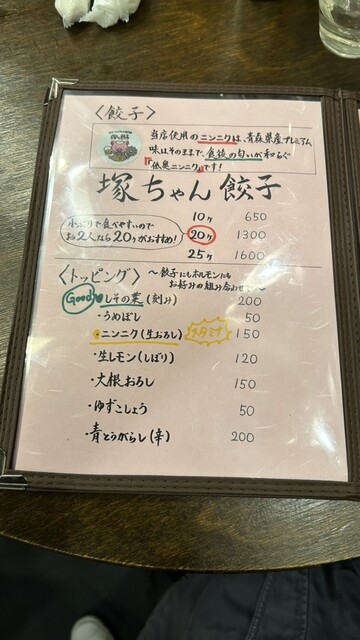 〈餃子〉
当店使用のニンニクは、青森県産プレミアム
味はそのままで、食後の匂いが和らぐ
『低臭ニンニク』です!
塚ちゃん餃子
10ヶ 650
小ぶりで食べやすいので
お2人なら20ヶがおすすめ!
20ヶ 1300
25ヶ 1600
〈トッピング〉 〜餃子にもホルモンにも
お好みの組み合わせで〜
Good しその葉(刻み) 200
・うめぼし 50
・ニンニク(生おろし) スタミナ 150
・生レモン(しぼり) 120
・大根おろし 150
・ゆずこしょう 50
・青とうがらし(辛) 200